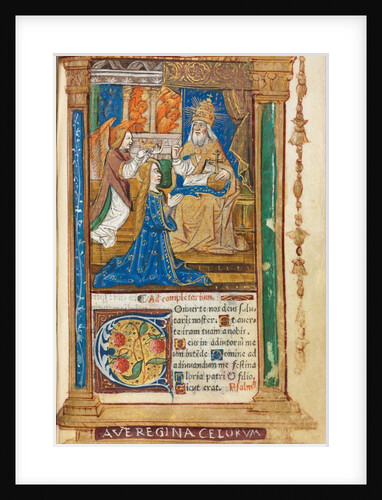 Ad completorium.
Onverte nos deus salu
taris noster. Et auerte
iram tuam a nobis.
Deus in adiutoriū me
um intēde Domine ad
adiuuandum me festina
Gloria patri & filio.
Sicut erat. Psalm9
AVE REGINA CELORVM